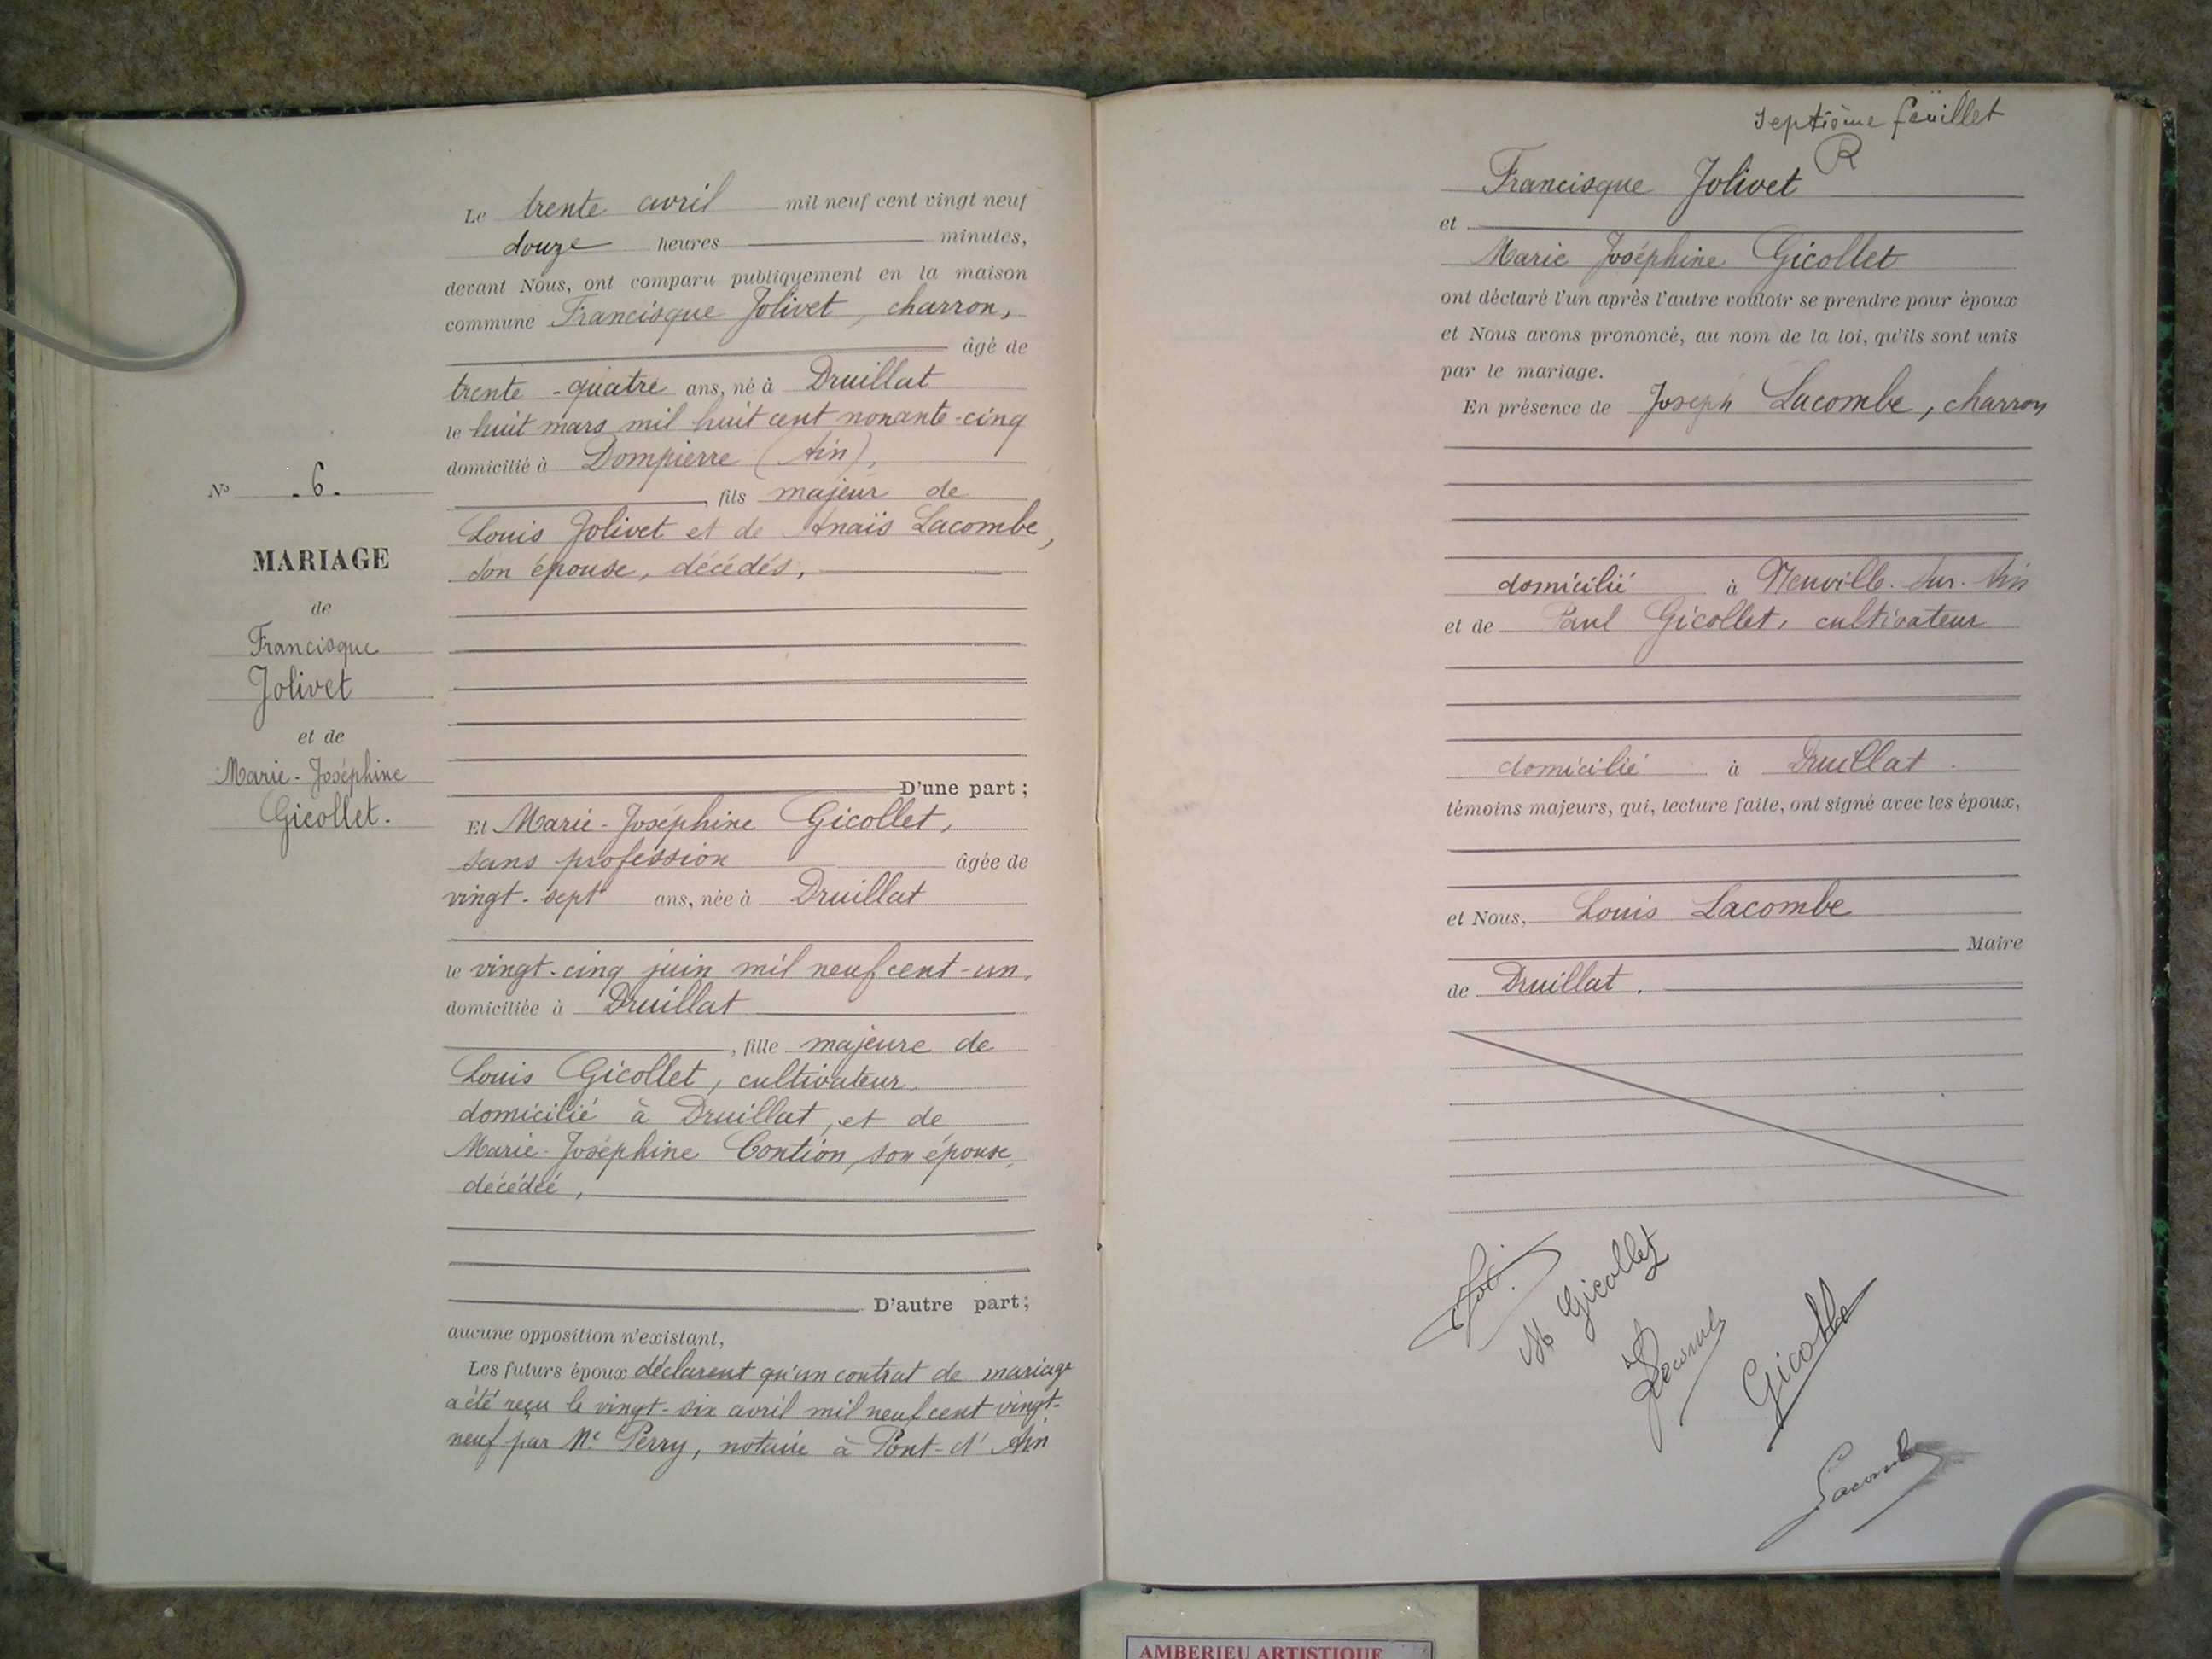 N° . 6 .
MARIAGE
de
Francisque
Jolivet
et de
Marie-Joséphine
Gicollet.
Le trente avril mil neuf cent vingt neuf
douze heures minutes,
devant Nous, ont comparu publiquement en la maison
commune Francisque Jolivet, charron,
âgé de
trente-quatre ans, né à Druillat
le huit mars mil huit cent nonante-cinq
domicilié à Dompierre (Ain),
, fils majeur de
Louis Jolivet et de Anaïs Lacombe,
son épouse, décédés,
D'une part ;
Et Marie-Joséphine Gicollet,
sans profession âgée de
vingt-sept ans, née à Druillat
le vingt-cinq juin mil neuf cent-un,
domiciliée à Druillat
, fille majeure de
Louis Gicollet, cultivateur,
domicilié à Druillat, et de
Marie-Joséphine Contion, son épouse,
décédée,
D'autre part ;
aucune opposition n'existant,
Les futurs époux déclarent qu'un contrat de mariage
a été reçu le vingt-six avril mil neuf cent vingt-
neuf par Me Perry, notaire à Pont-d'Ain
septième feuillet
R
Francisque Jolivet
et
Marie Joséphine Gicollet
ont déclaré l'un après l'autre vouloir se prendre pour époux
et Nous avons prononcé, au nom de la loi, qu'ils sont unis
par le mariage.
En présence de Joseph Lacombe, charron
domicilié à Neuville-sur-Ain
et de Paul Gicollet, cultivateur
domicilié à Druillat.
témoins majeurs, qui, lecture faite, ont signé avec les époux,
et Nous, Louis Lacombe
Maire
de Druillat.
M Gicollet
Lacombe
Gicollet
Lacombe
AMBERIEU ARTISTIQUE